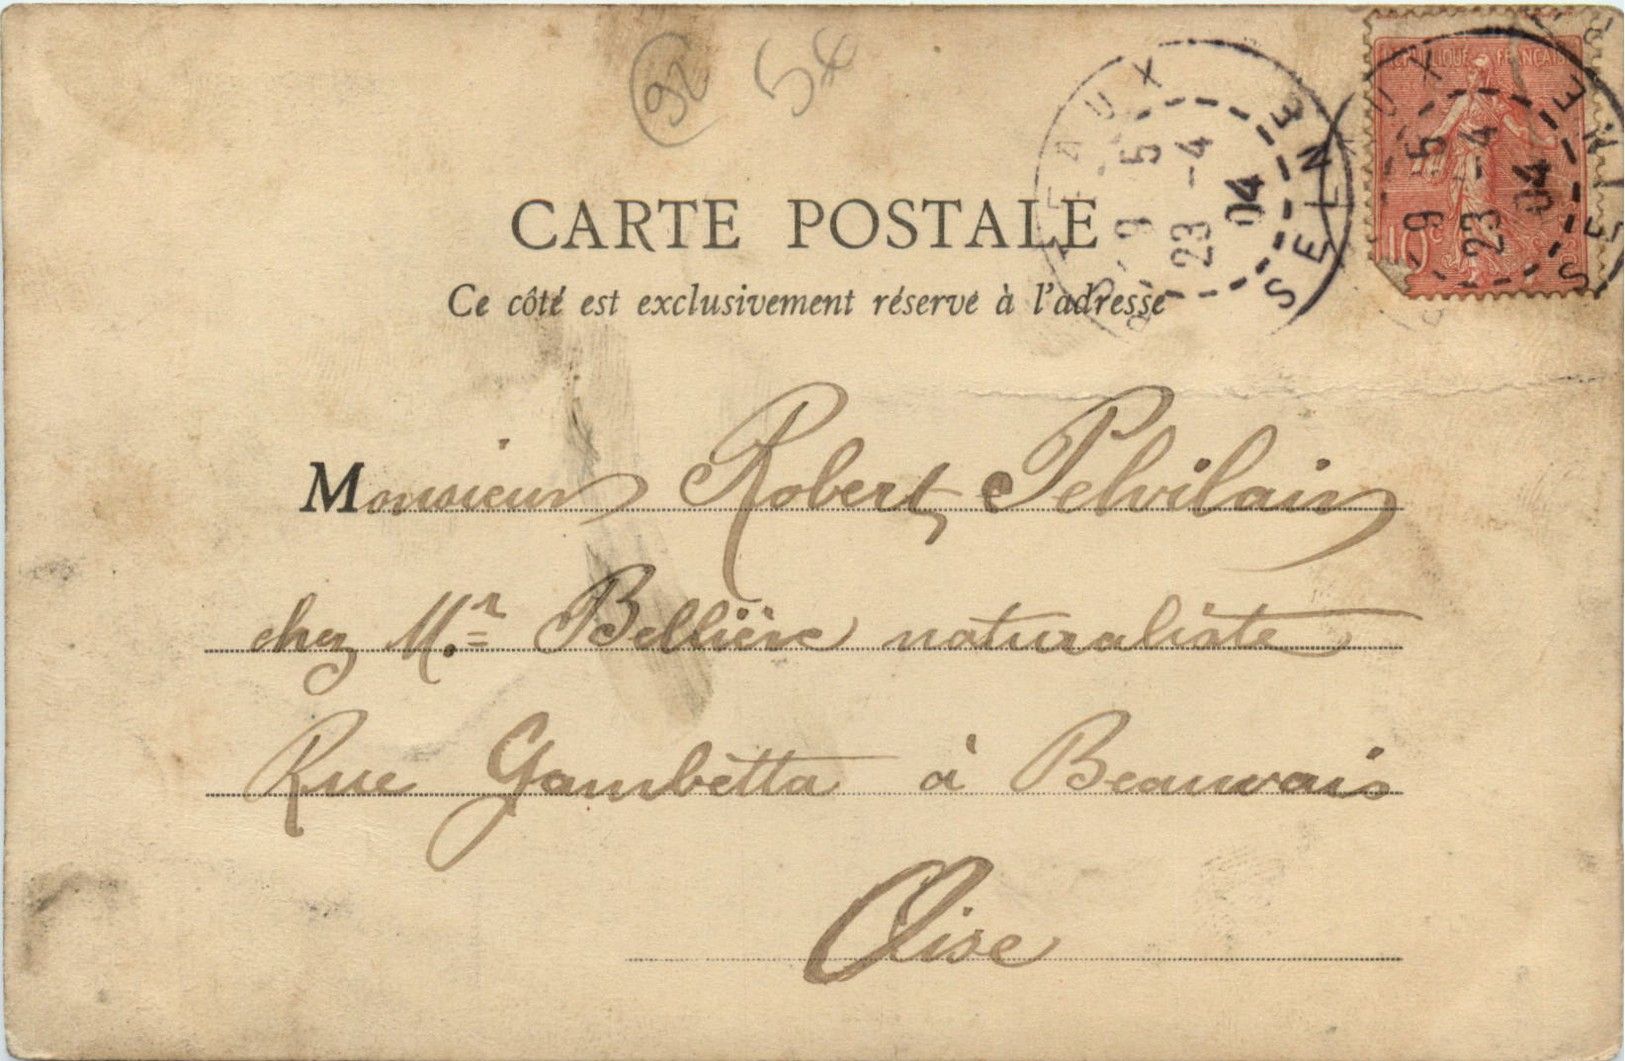 92
5€
CARTE POSTALE
Ce côté est exclusivement réservé à l'adresse
PUTEAUX
9 5
23 -4
04
SEINE
REPUBLIQUE FRANCAISE
10c
PUTEAUX
9 5
23 -4
04
SEINE
Monsieur Robert Pelvilain
chez Mr. Bellière naturaliste
Rue Gambètta à Beauvais
Oise